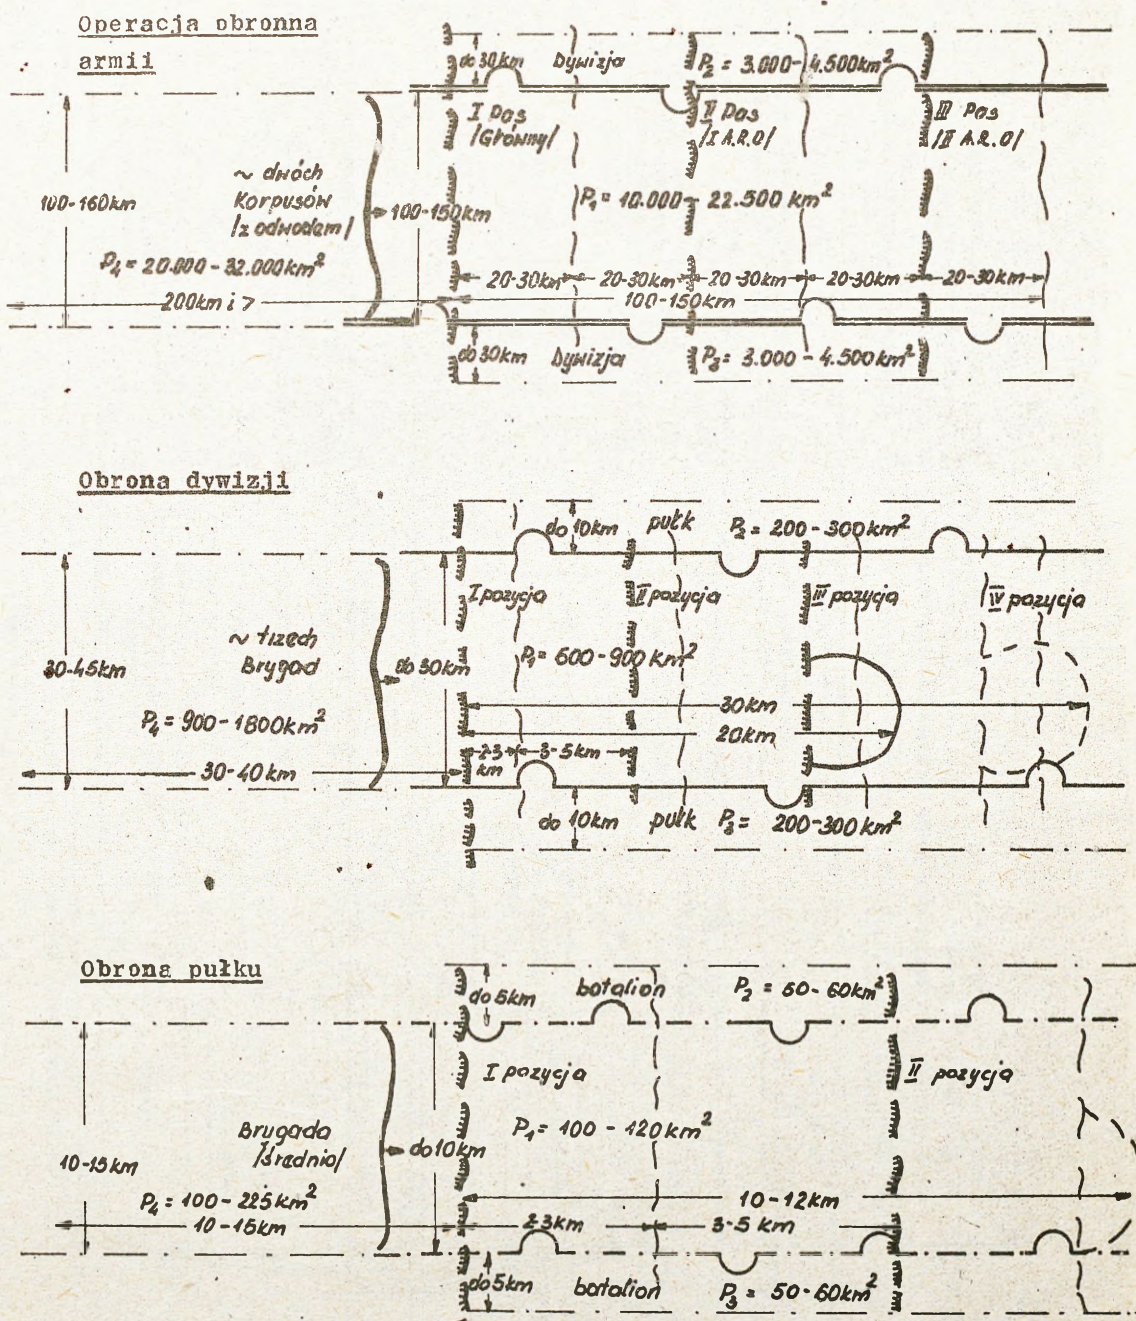 Operacja obronna
armii
do 30km Dywizja P₂ = 3.000-4.500km²
I Pas II Pas III Pas
/Główny/ /I A.R.O/ /II A.R.O/
~ dwóch
Korpusów
/z odwodem/
100-160km 100-150km P₁ = 10.000 - 22.500 km²
P₄ = 20.000-32.000km²
20-30km 20-30km 20-30km 20-30km 20-30km
200km i > 100-150km
do 30km Dywizja P₃ = 3.000-4.500km²
Obrona dywizji
do 10km pułk P₂ = 200-300km²
I pozycja II pozycja III pozycja IV pozycja
~ trzech
Brygad
30-45km do 30km P₁ = 600-900km²
P₄ = 900-1800km²
30km
20km
2-3 km 3-5km
30-40km
do 10km pułk P₃ = 200-300km²
Obrona pułku
do 5km batalion P₂ = 50-60km²
I pozycja II pozycja
Brygada
/średnio/
P₁ = 100-120km²
10-15km do 10km
P₄ = 100-225km²
10-12km
10-15km 2-3km 3-5 km
do 5km batalion P₃ = 50-60km²